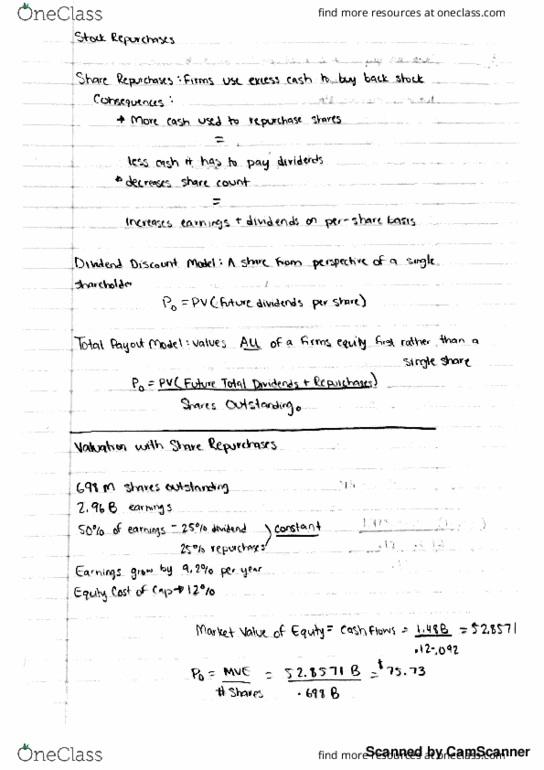 OneClass
find more resources at oneclass.com
Stock Repurchases
Share Repurchases: Firms use excess cash to buy back stock
Consequences:
→ More cash used to repurchase shares
=
less cash it has to pay dividends
* decreases share count
=
increases earnings + dividends on per-share basis
Dividend Discount Model: A share from perspective of a single
shareholder
P₀ = PV(Future dividends per share)
Total Payout Model: values ALL of a firms equity first rather than a
single share
P₀ = PV(Future Total Dividends + Repurchases)
Shares Outstanding₀
Valuation with Share Repurchases
698 M shares outstanding
2.96 B earnings
50% of earnings = 25% dividend
25% repurchases
constant
Earnings grow by 9.2% per year
Equity Cost of Cap → 12%
Market Value of Equity = Cash Flows = 1.48B = 52.8571
.12-.092
P₀ = MVE = 52.8571 B = $75.73
# Shares .698 B
OneClass
find more resources at oneclass.com
Scanned by CamScanner